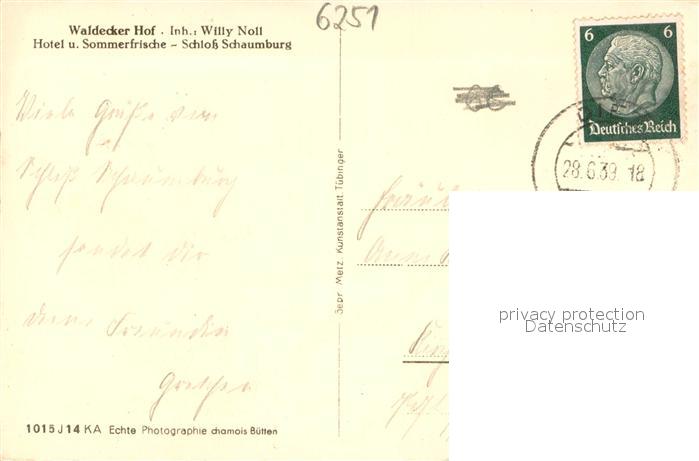 6251
Waldecker Hof . Inh.: Willy Noll
Hotel u. Sommerfrische – Schloß Schaumburg
6 6
Deutsches Reich
28.6.39. 18
Viele Grüße von
Schloß Schaumburg
sendet dir
deine Freundin
Gretchen
Gebr. Metz, Kunstanstalt, Tübingen
privacy protection
Datenschutz
1015 J 14 KA Echte Photographie chamois Bütten